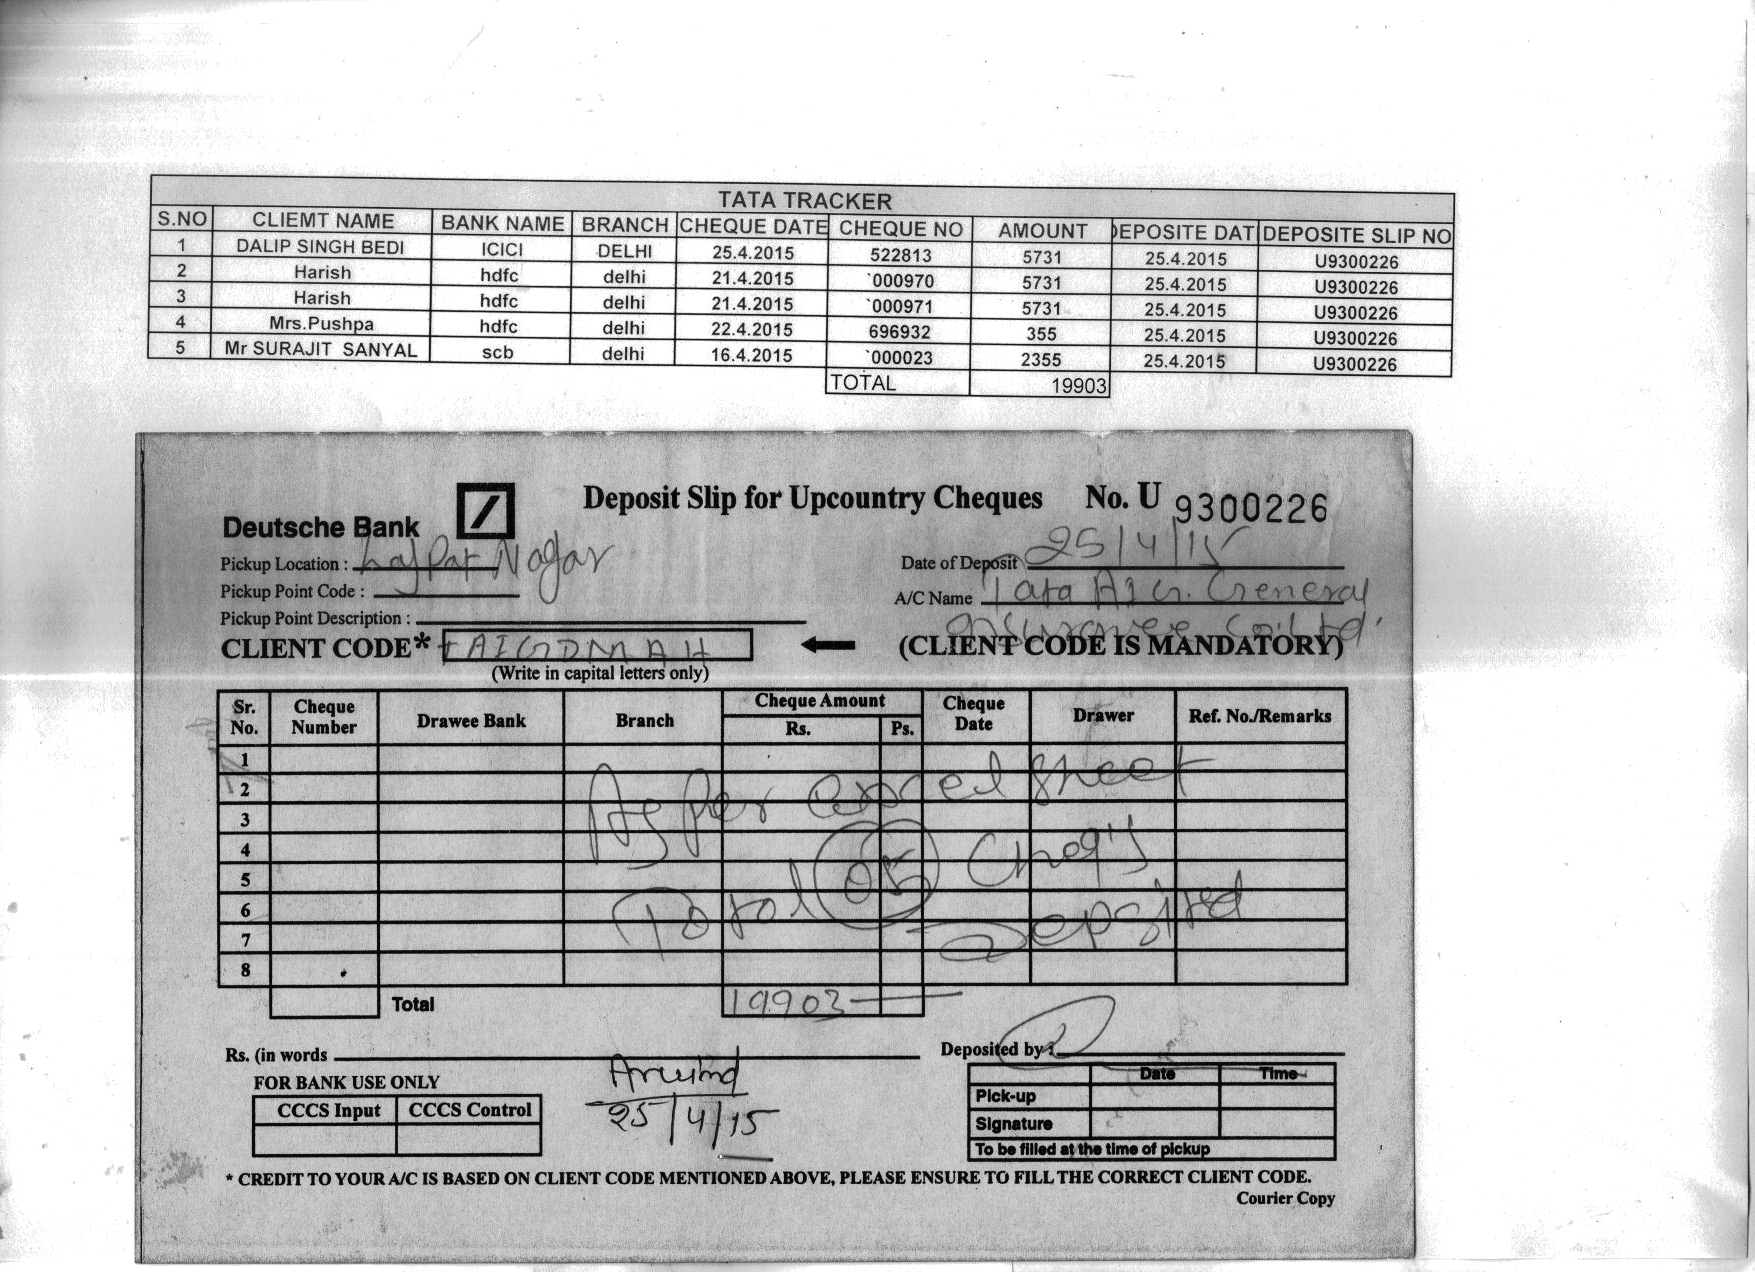 TATA TRACKER
S.NO CLIEMT NAME BANK NAME BRANCH CHEQUE DATE CHEQUE NO AMOUNT DEPOSITE DAT DEPOSITE SLIP NO
1 DALIP SINGH BEDI ICICI DELHI 25.4.2015 522813 5731 25.4.2015 U9300226
2 Harish hdfc delhi 21.4.2015 `000970 5731 25.4.2015 U9300226
3 Harish hdfc delhi 21.4.2015 `000971 5731 25.4.2015 U9300226
4 Mrs.Pushpa hdfc delhi 22.4.2015 696932 355 25.4.2015 U9300226
5 Mr SURAJIT SANYAL scb delhi 16.4.2015 `000023 2355 25.4.2015 U9300226
TOTAL 19903
Deutsche Bank Deposit Slip for Upcountry Cheques No. U 9300226
Pickup Location : Lajpat Nagar Date of Deposit 25/4/15
Pickup Point Code : A/C Name Tata AIG. General
Pickup Point Description : Insurance Co. Ltd.
CLIENT CODE* (CLIENT CODE IS MANDATORY)
(Write in capital letters only)
Sr. No. Cheque Number Drawee Bank Branch Cheque Amount Rs. Ps. Cheque Date Drawer Ref. No./Remarks
1
2
3
4
5
6
7
8
As per excel sheet
Total 05 Cheq's
Deposited
Total 19903
Rs. (in words Deposited by :
Arwind
25/4/15
FOR BANK USE ONLY
CCCS Input CCCS Control
Date Time
Pick-up
Signature
To be filled at the time of pickup
* CREDIT TO YOUR A/C IS BASED ON CLIENT CODE MENTIONED ABOVE, PLEASE ENSURE TO FILL THE CORRECT CLIENT CODE.
Courier Copy